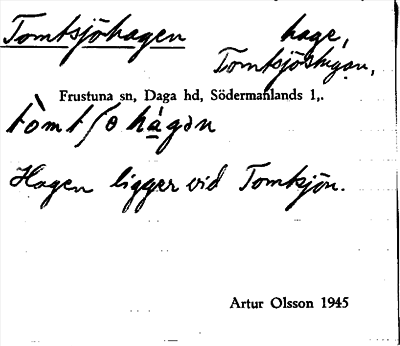 Tomtsjöhagen
hage,
Tomtsjöstugan,
Frustuna sn, Daga hd, Södermanlands l,.
tòmtʃø há̱gən
Hagen ligger vid Tomtsjön.
Artur Olsson 1945